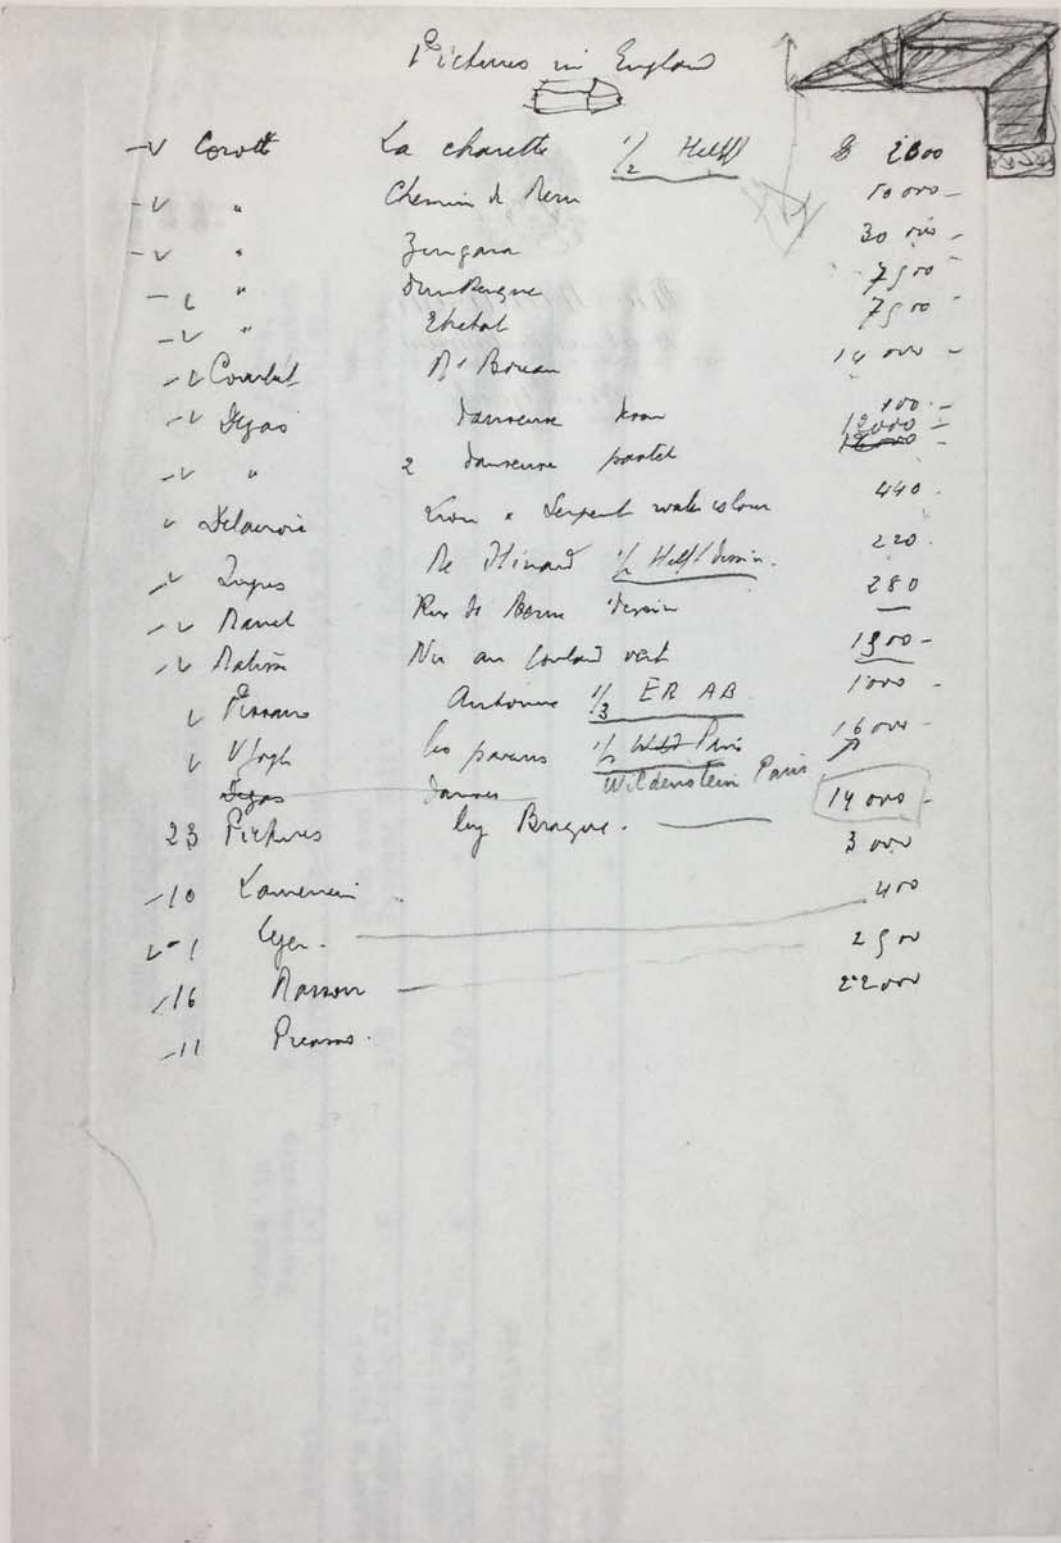 Pictures in England
Corott La charette 1/2 Helft $ 2800
" Chemin de 10 000 -
" Zingara 30 000 -
" Dunkerque 7500 -
" Etretat 7500 -
Courbet Me Boreau 14 000 -
Degas danseuse 100. -
12000 -
" 2 danseuse pastel 12 000 -
Delacroix Lion & Serpent water colour 440.
Ingres Me 1/2 Helft dessin. 220.
Manet Rue de Berne dessin 280
Matisse Nu au foulard vert 1300 -
Pissarro Automne 1/3 ER AB 1000 -
V Gogh les parcans 1/2 Wild Paris 16 000 -
Degas danses Wildenstein Paris 14 000 -
23 Pictures by Braque. 3 000
10 Laurencin 400
1 Leger. 2500
16 Masson 22000
11 Picasso.